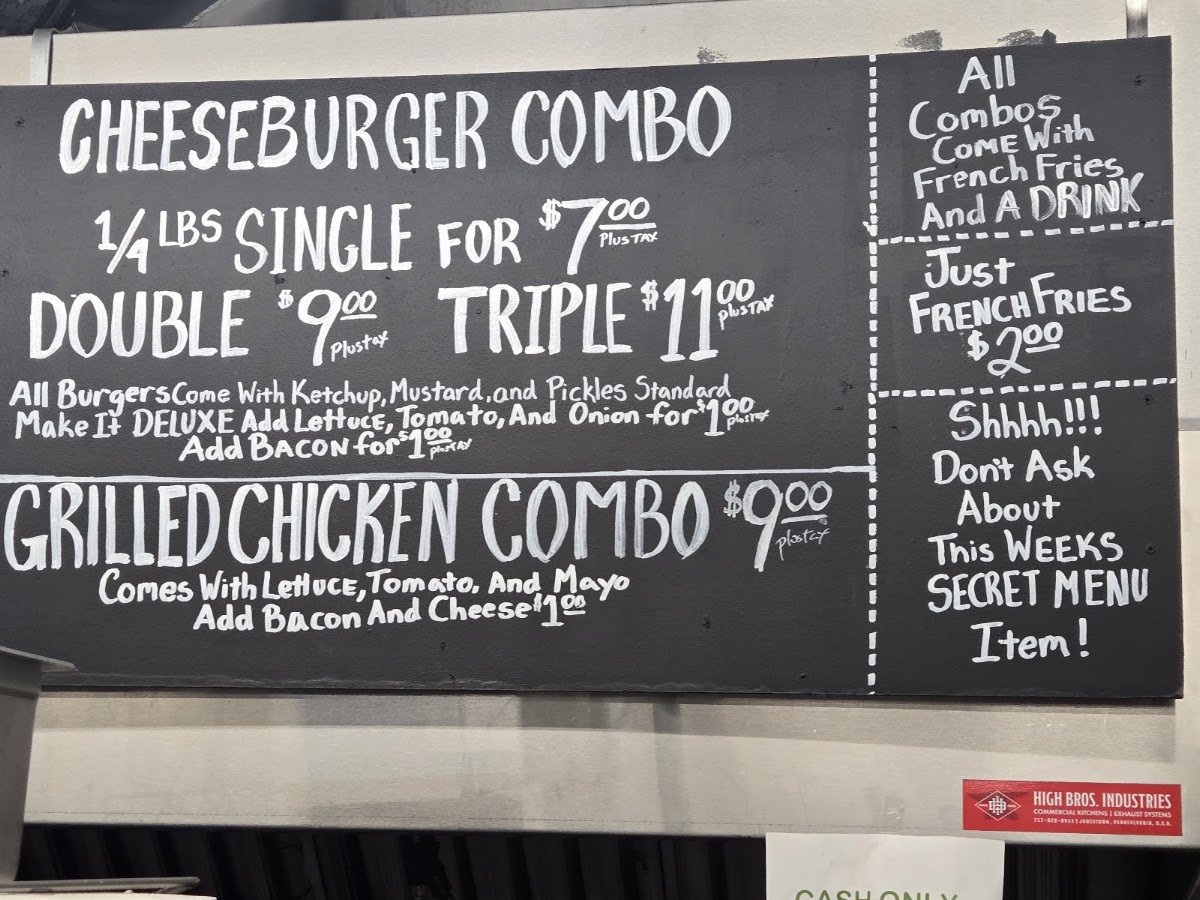 CHEESEBURGER COMBO
1/4 LBS SINGLE FOR $7.00 Plus TAX
DOUBLE $9.00 Plus tax TRIPLE $11.00 plus TAX
All Burgers Come With Ketchup, Mustard, and Pickles Standard
Make It DELUXE Add Lettuce, Tomato, And Onion for $1.00 plus tax
Add BACON for $1.00 plus TAX
GRILLED CHICKEN COMBO $9.00 plus tax
Comes With Lettuce, Tomato, And Mayo
Add Bacon And Cheese $1.00
All
Combos
COME With
French Fries
And A DRINK
Just
FRENCH FRIES
$2.00
Shhhh!!!
Don't Ask
About
This WEEKS
SECRET MENU
Item!
HIGH BROS. INDUSTRIES
COMMERCIAL KITCHENS | EXHAUST SYSTEMS
JONESTOWN, PENNSYLVANIA, U.S.A.
CASH ONLY